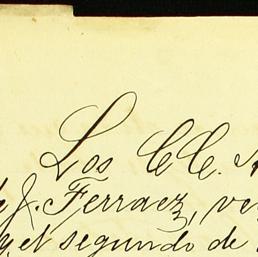 Los CC.
J. Ferraez, ve
y el segundo de